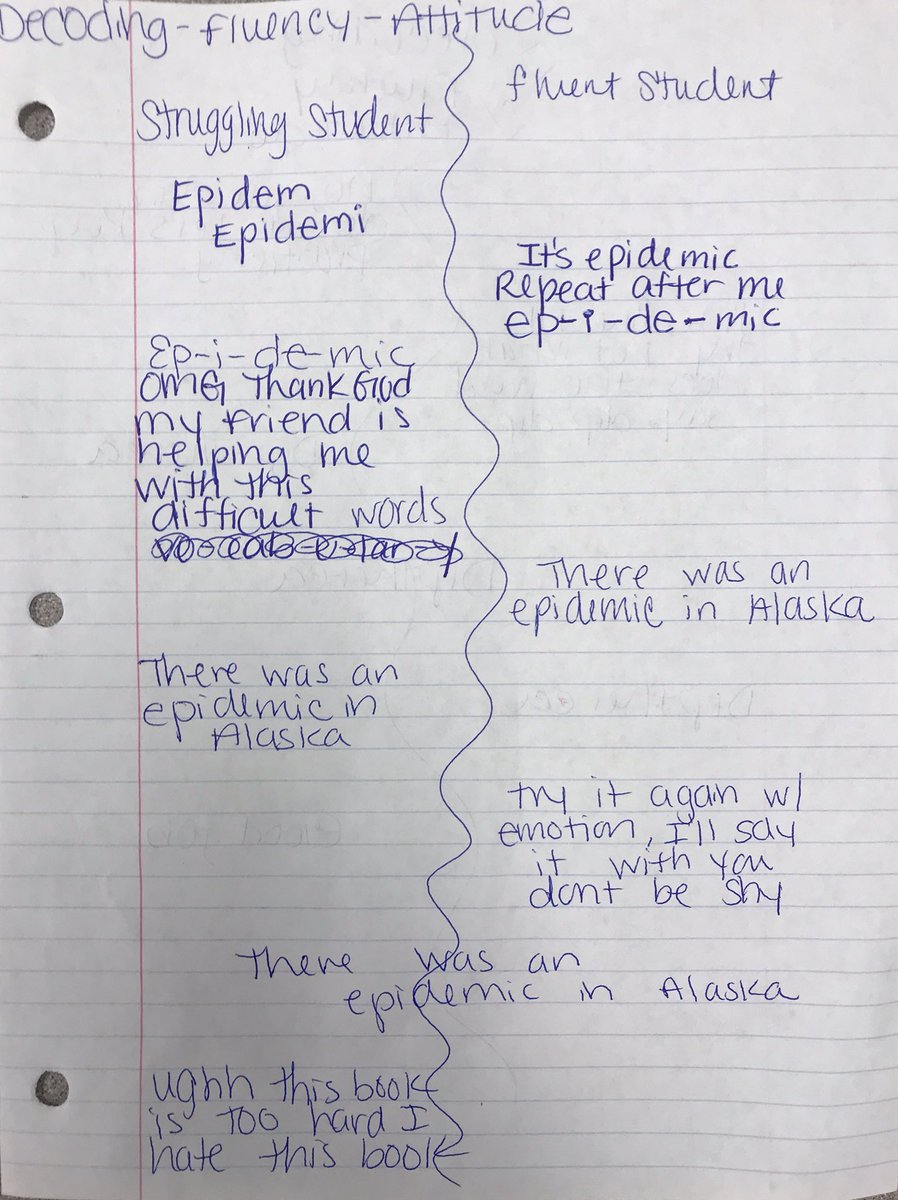 Decoding - fluency - Attitude
fluent Student
Struggling Student
Epidem
Epidemi
It's epidemic
Repeat after me
ep-i-de-mic
Ep-i-de-mic
OMG Thank God
my friend is
helping me
with this
difficult words
There was an
epidemic in Alaska
There was an
epidemic in
Alaska
try it again w/
emotion, I'll say
it with you
dont be shy
there was an
epidemic in Alaska
ughh this book
is too hard I
hate this book